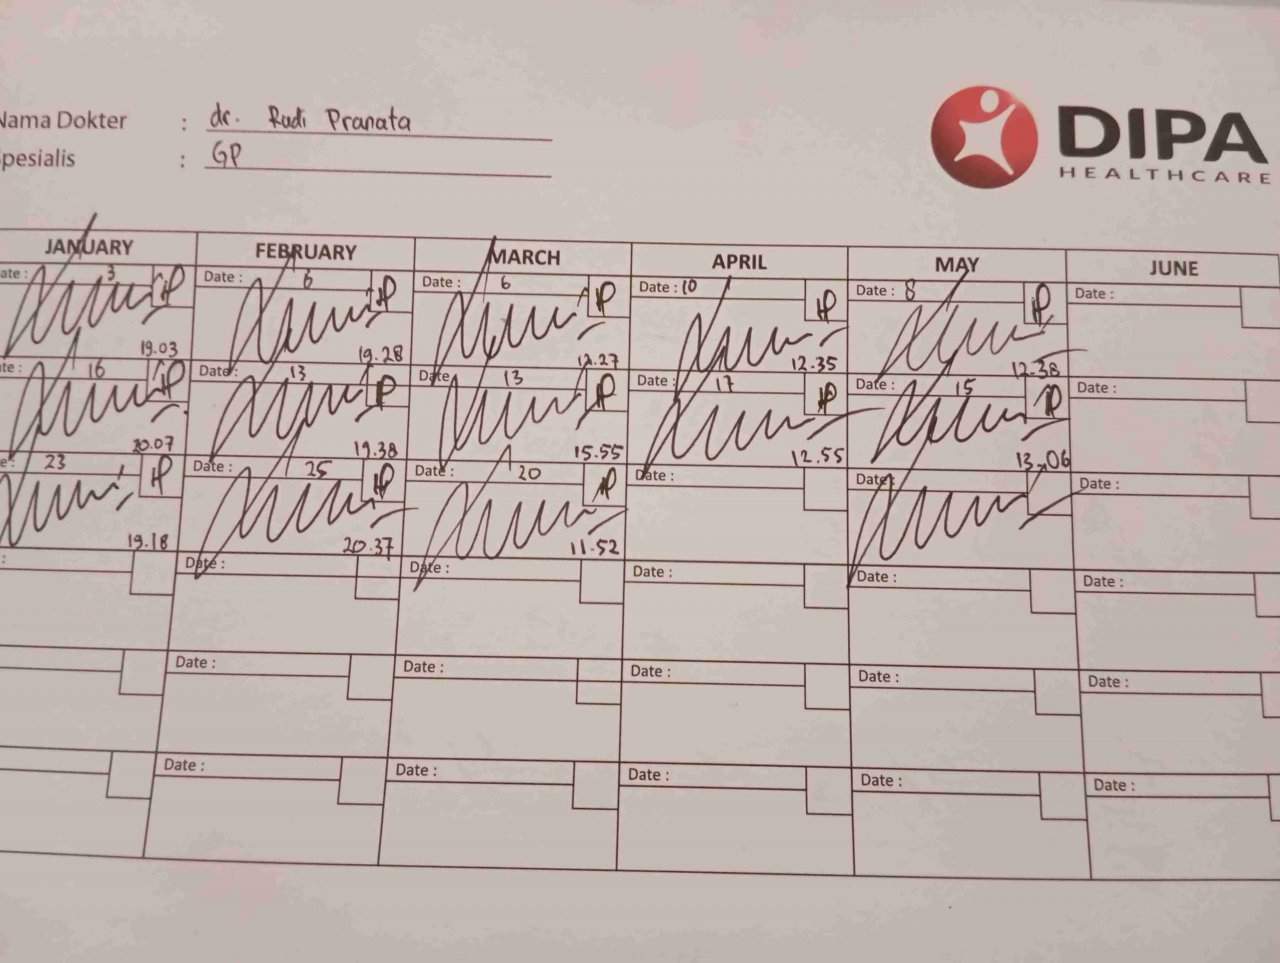 Nama Dokter : dr. Rudi Pranata
Spesialis : GP
DIPA
HEALTHCARE
JANUARY FEBRUARY MARCH APRIL MAY JUNE
Date : 3 Date : 6 Date : 6 Date : 10 Date : 8 Date :
19.03 19.28 12.27 12.35 12.38
Date : 16 Date : 13 Date : 13 Date : 17 Date : 15 Date :
20.07 19.38 15.55 12.55 13.06
Date : 23 Date : 25 Date : 20 Date : Date : Date :
19.18 20.37 11.52
: Date : Date : Date : Date : Date :
Date : Date : Date : Date : Date :
Date : Date : Date : Date : Date :